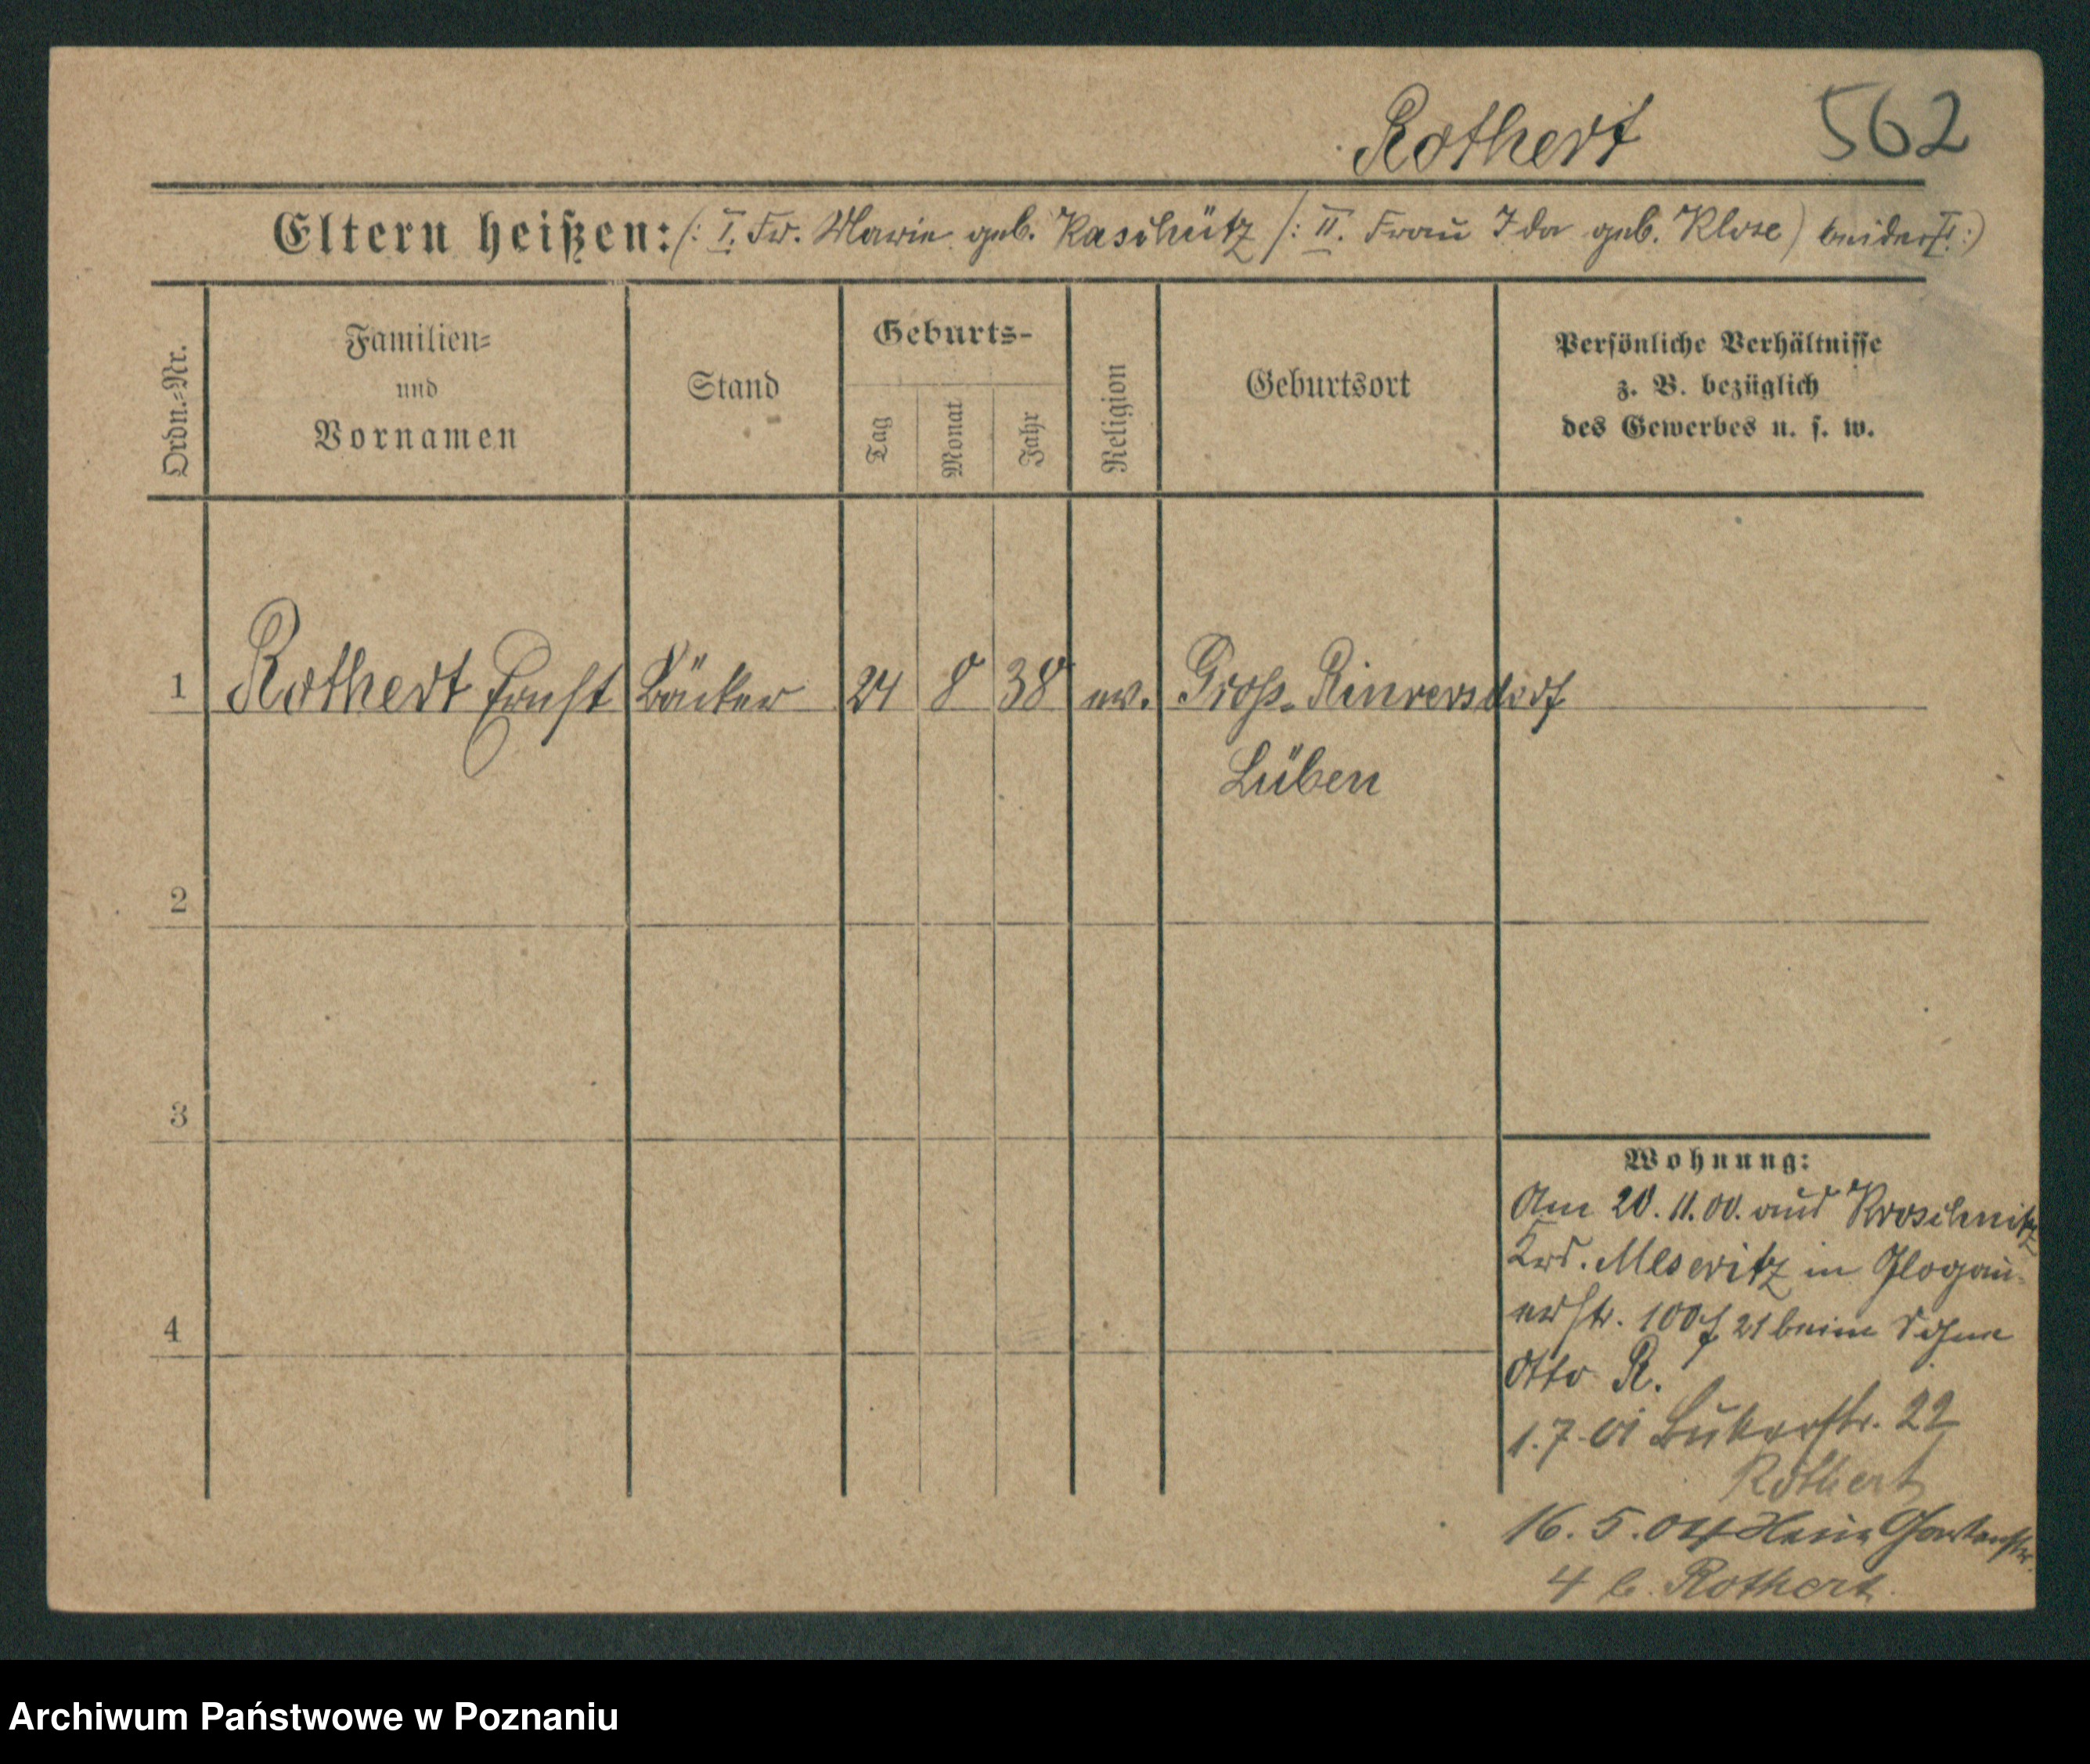 Rothert 562
Eltern heißen: (: I. Fr. Marie geb. Kaschütz /: II. Frau Ida geb. Klose) beide †:)
Ordn.=Nr.
Familien=
und
Vornamen
Stand
Geburts-
Tag
Monat
Jahr
Religion
Geburtsort
Persönliche Verhältnisse
z. B. bezüglich
des Gewerbes u. s. w.
1 Rothert Ernst Bäcker 24 8 38 ev. Groß-Rinnersdorf
Lüben
2
3
4
Wohnung:
Am 20.11.00. aus
Krs. Meseritz in Glogau-
erstr. 100 21 beim Sohne
Otto R.
1.7.01 22
Rothert
16.5.04 Gartenstr.
4 b. Rothert
Archiwum Państwowe w Poznaniu